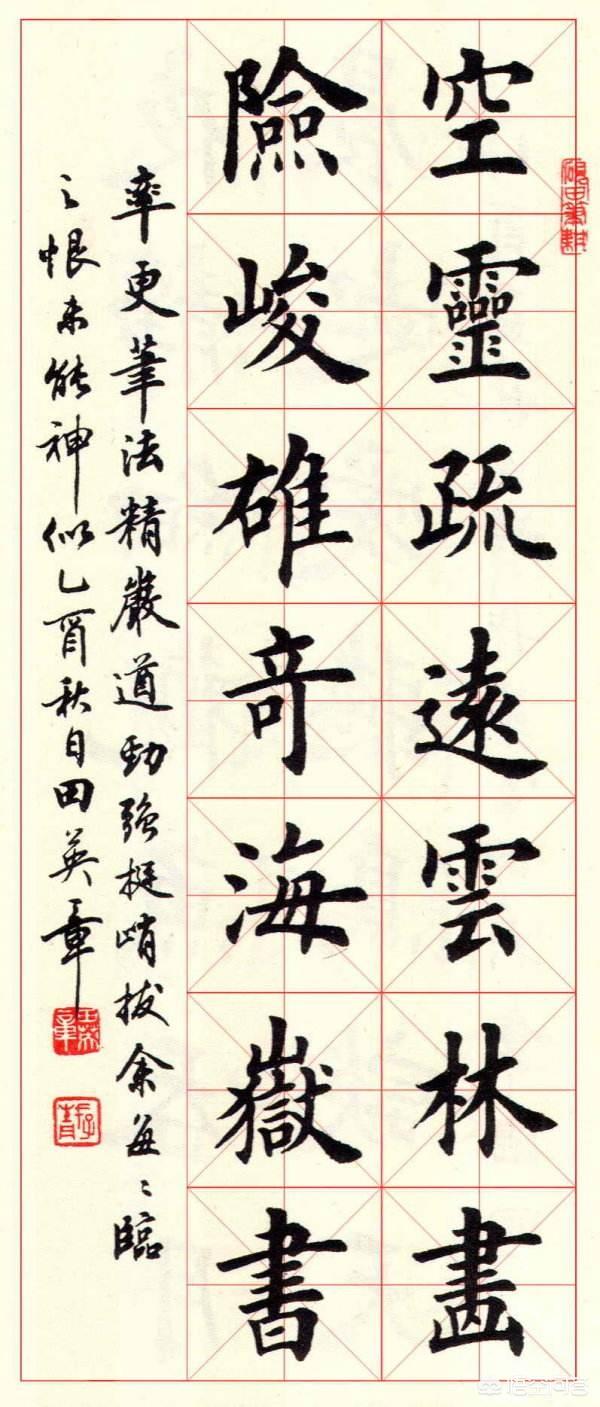 空靈疏遠雲林畫
險峻雄奇海嶽書
率更筆法精嚴遒勁强挺峭拔余每〻臨
之恨未能神似乙酉秋日田英章
硯田筆耕
悟空问答